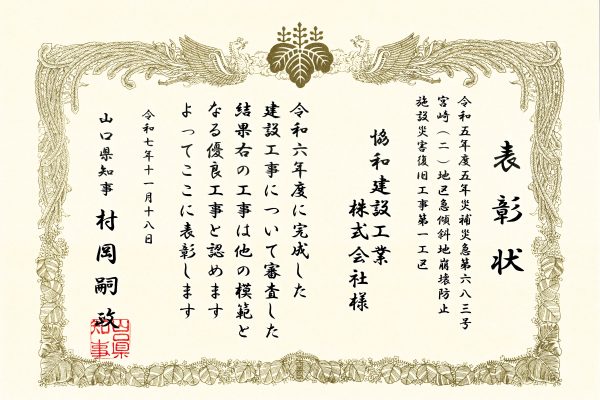 表彰状
令和五年度五年災補災急第六八三号
宮崎（二）地区急傾斜地崩壊防止
施設災害復旧工事第一工区
協和建設工業
株式会社様
令和六年度に完成した
建設工事について審査した
結果右の工事は他の模範と
なる優良工事と認めます
よってここに表彰します
令和七年十一月十八日
山口県知事 村岡嗣政
山口県
知事